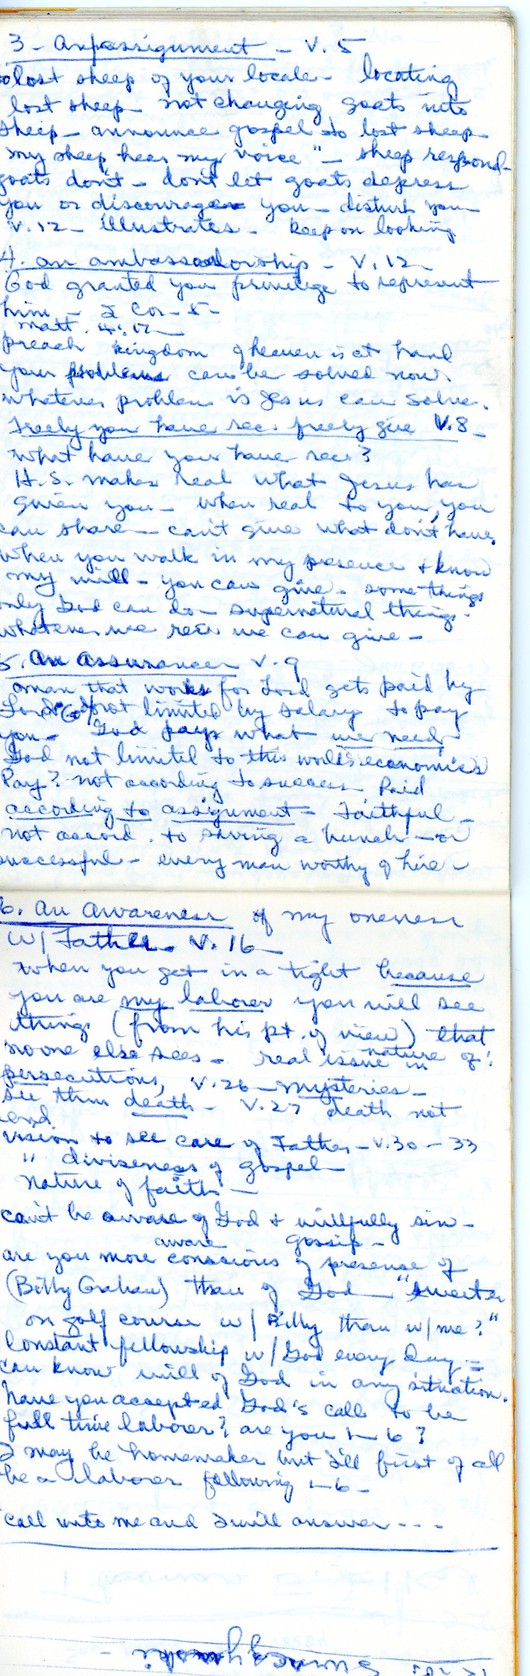 3 - An assignment - V. 5
to lost sheep of your locale - locating
lost sheep - not changing goats into
sheep - announce gospel to lost sheep
"my sheep hear my voice" - sheep respond -
goats don't - don't let goats depress
you or discourage you - disturb you
V. 12 - illustrates - keep on looking
4. an ambassadorship - V. 12 -
God granted you privilege to represent
him - 2 Cor - 5 -
matt. 4:17 -
preach kingdom of heaven is at hand
your problems can be solved now.
whatever problem is Jesus can solve.
Freely you have rec. freely give V. 8 -
what have you have rec?
H.S. makes real what Jesus has
given you - when real to you, you
can share - can't give what don't have.
When you walk in my presence & know
my will - you can give - some things
only God can do - supernatural things.
whatever we rec. we can give -
5. An assurance V. 9
a man that works for Lord gets paid by
Lord - God not limited by salary to pay
you - God pays what we need -
God not limited to this world's economics
Pay? not according to success Paid
according to assignment - faithful -
not accord. to saving a bunch - or
successful - every man worthy of hire -
6. An awareness of my oneness
w/ Father - V. 16 -
When you get in a tight because
you are my laborer you will see
things (from his pt. of view) that
no one else sees - real issue in nature of:
persecutions, V. 26 - mysteries -
see thru death - V. 27 death not
end
vision to see care of Father - V. 30 - 33
" diviseness of gospel -
nature of faith -
can't be aware of God & willfully sin -
gossip -
are you more aware conscious of presense of
(Billy Graham) than of God - "sweeter
on golf course w/ Billy than w/ me?"
Constant fellowship w/ God every day =
can know will of God in any situation.
have you accepted God's call to be
full time laborer? are you 1-6?
I may be homemaker but I'll first of all
be a laborer following 1-6 -
"call unto me and I will answer - - -